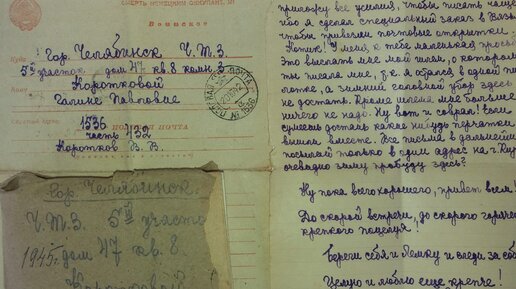 СМЕРТЬ НЕМЕЦКИМ
Воинское
Куда
Гор. Челябинск Ч.Т.З.
5й участок дом 47 кв. 8 комн. 3
Коротковой
Галине Павловне
1536
ПОЛЕВАЯ ПОЧТА
часть 732
Коротков В. В.
Гор. Челябинск.
Ч.Т.З. 5й участок
1945. дом 47 кв. 8.
Коротковой
приложу все усилия, чтобы писать чаще
ибо я сделал специальный заказ в
чтобы привезли почтовые открытки.
У меня к тебе маленькая просьба
Это выслать мне мой шлем, о котором
ты писала мне, т.к. я обрался в одной пи-
лотке, а зимний головной убор здесь
не достать. Кроме шлема мне больше
ничего не надо. Ну вот и соврал! Если
сумеешь достать какие нибудь перчатки
вышли вместе. Все письма в дальнейшем
посылай только в один адрес на г.
очевидно зиму пробуду здесь?
Ну пока всего хорошего, привет всем!
До скорой встречи, до скорого горячего
крепкого поцелуя!
Береги себя и Лёмку и следи за собой
Целую и люблю еще крепче!